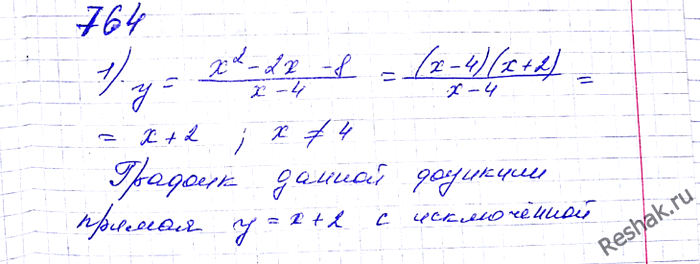 764
1). y = \frac{x^2 - 2x - 8}{x - 4} = \frac{(x-4)(x+2)}{x-4} =
= x + 2 ; x ≠ 4
График данной функции
прямая y = x + 2 с исключённой
Reshak.ru